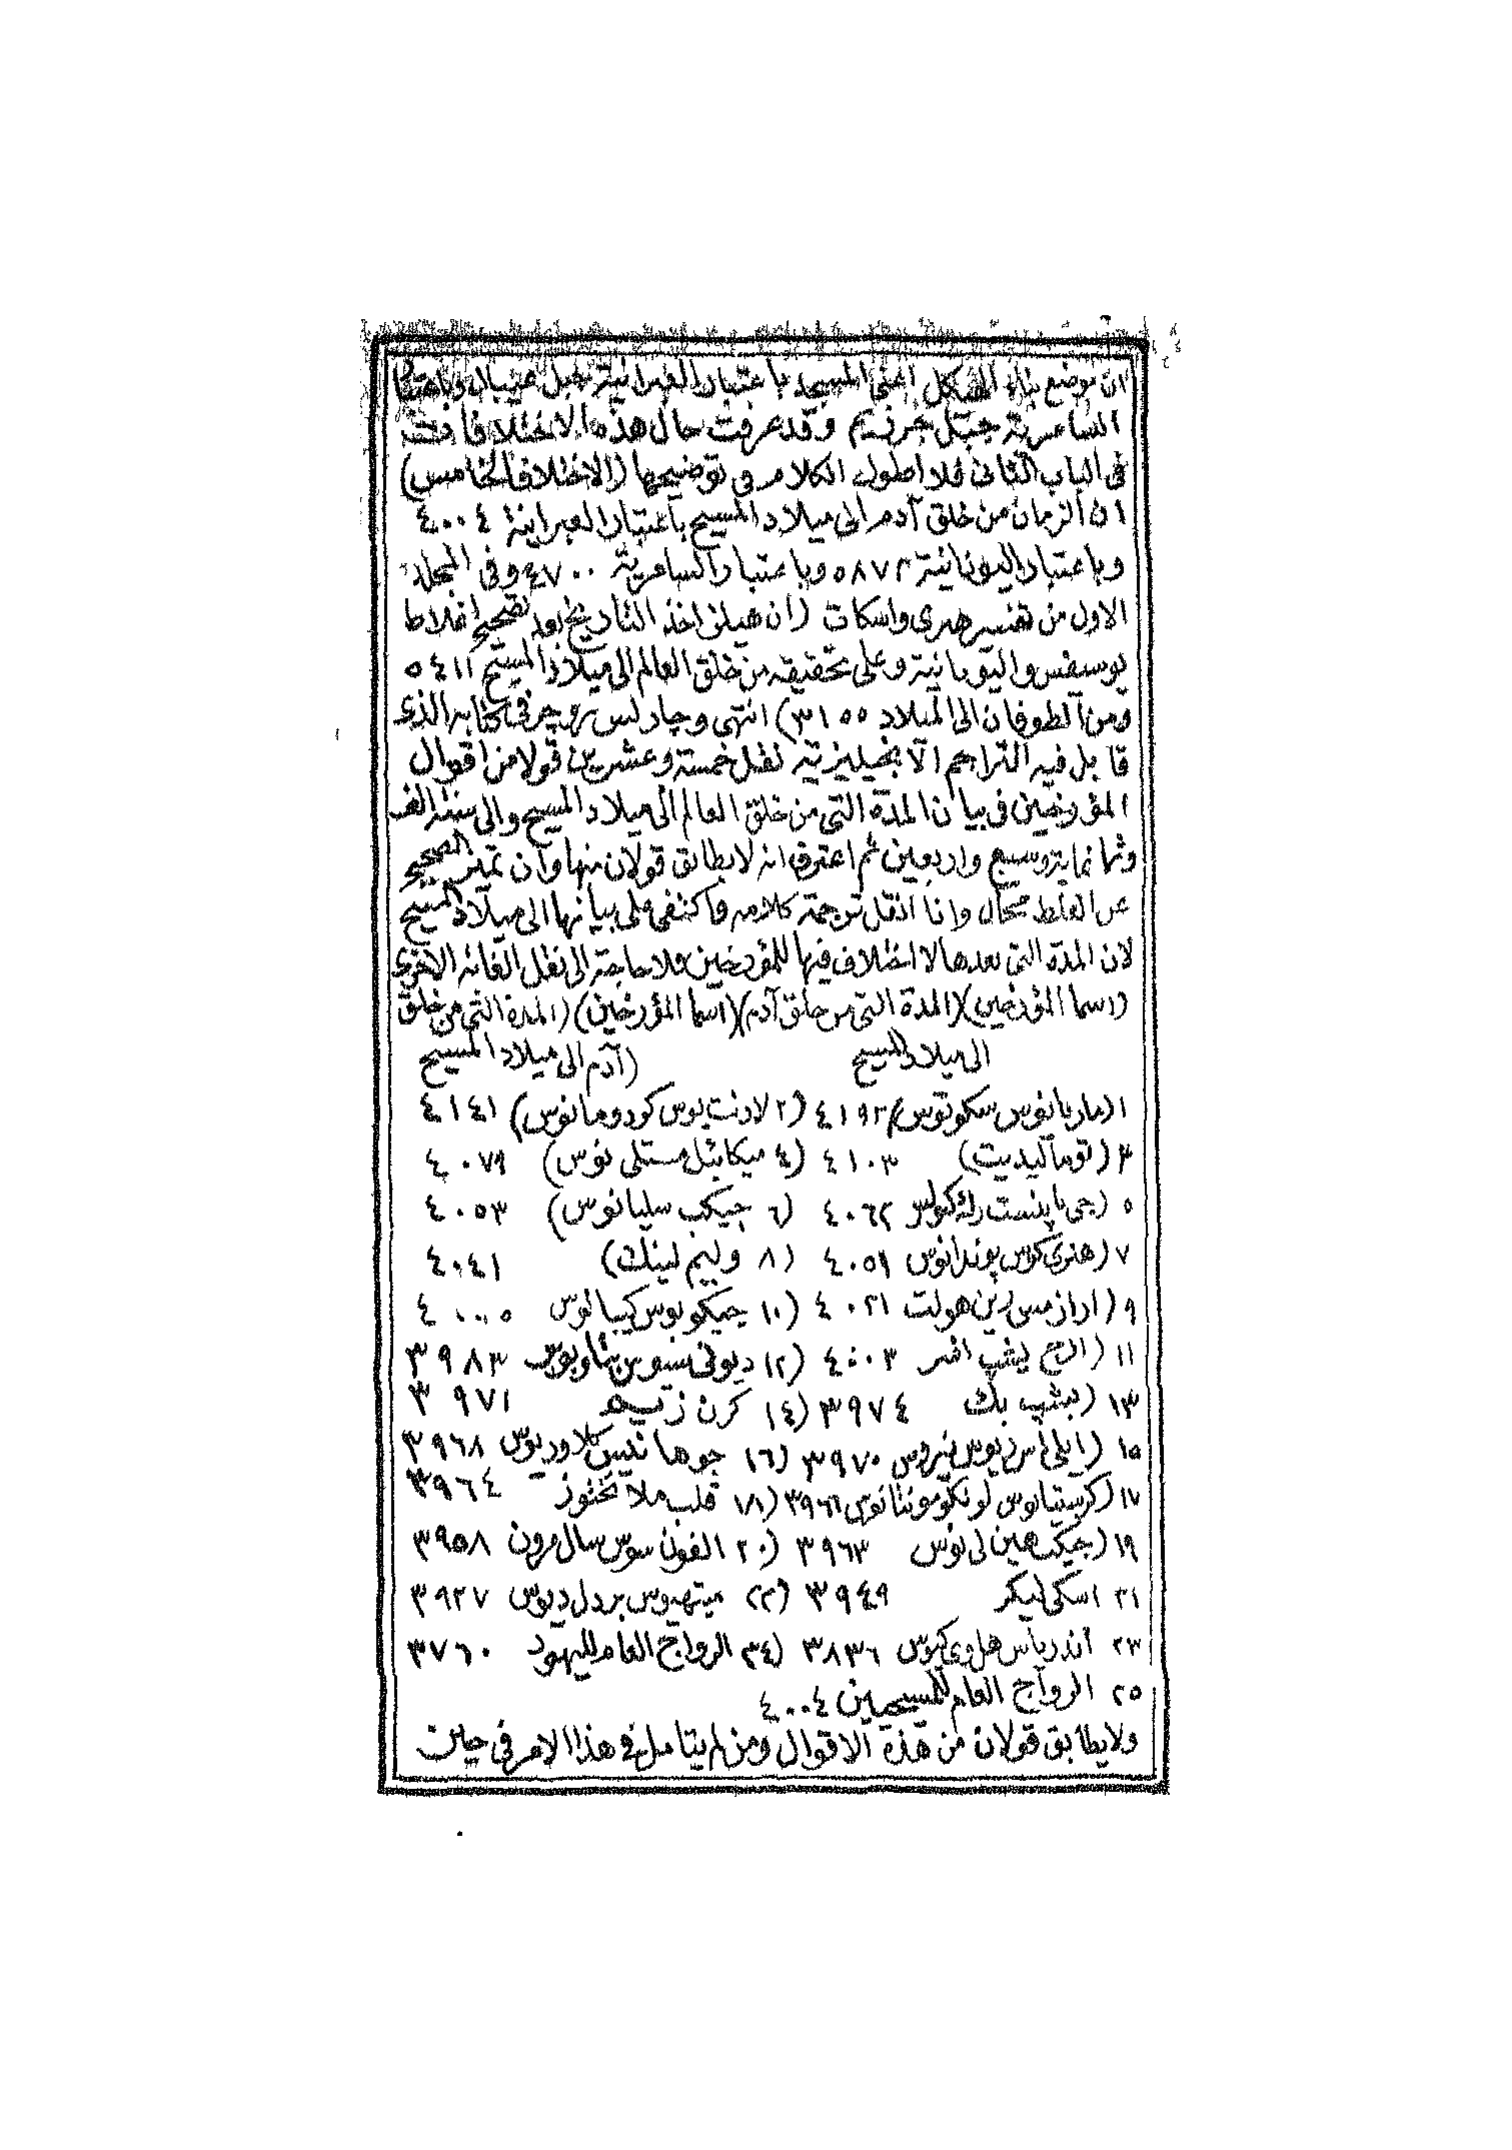 ان موضع بناء الهيكل اعنى المسجد باعتبار العبرانية جبل عيبال وباعتبار
السامرية جبل جرزيم وقد عرفت حال هذه الاختلافات
فى الباب الثانى فلا اطول الكلام فى توضيحها (الاختلاف الخامس)
ان الزمان من خلق آدم الى ميلاد المسيح باعتبار العبرانية ٤٠٠٤
وباعتبار اليونانية ٥٨٧٢ وباعتبار السامرية ٤٧٠٠ وفى المجلد
الاول من تفسير هنرى واسكات (ان هيلز اخذ التاريخ بعد تصحيح اغلاط
يوسيفس واليونانية وعلى تحقيقه من خلق العالم الى ميلاد المسيح ٥٤١١
ومن الطوفان الى الميلاد ٣١٥٥) انتهى وچارلس روجر فى كتابه الذى
قابل فيه التراجم الانجيليزية نقل خمسة وعشرين قولا من اقوال
المؤرخين فى بيان المدة التى من خلق العالم الى ميلاد المسيح والى سنة الف
وثمانماية وسبع واربعين ثم اعترف انه لا يطابق قولان منها وان تميز الصحيح
عن الغلط محال وانا انقل ترجمة كلامه واكتفى على بيانها الى ميلاد المسيح
لان المدة التى بعدها لا اختلاف فيها للمؤرخين فلا حاجة الى نقل الغاية الاخرى
(اسما المؤرخين) (المدة التى من خلق آدم) (اسما المؤرخين) (المدة التى من خلق
الى ميلاد المسيح (آدم الى ميلاد المسيح
١ (ماريانوس سكوتوس) ٤١٩٢ (٢ لارنت يوس كودومانوس) ٤١٤١
٣ (توما ليديت) ٤١٠٣ (٤ ميكائيل مستلى نوس) ٤٠٧٩
٥ (جى باپتست رك كيولس ٤٠٦٢ (٦ جيكب سليانوس) ٤٠٥٣
٧ (هنرى كوس پوندانوس ٤٠٥١ (٨ وليم لينك) ٤٠٤١
٩ (ارازمس رين هولت ٤٠٢١ (١٠ جيكوبوس كيبالوس ٤٠٠٥
١١ (ارج بشپ اشر ٤٠٠٣ (١٢ ديونى سيوس پتاويوس ٣٩٨٣
١٣ (بشپ بك ٣٩٧٤ (١٤ كرن زيم ٣٩٧١
١٥ (ايلى اس ريوس نيروس ٣٩٧٠ (١٦ جوها نيس كلاوريوس ٣٩٦٨
١٧ (كرستيانوس لونكو مونتانوس ٣٩٦٦ (١٨ فلب ملا نختوز ٣٩٦٤
١٩ (جيكب هين لى نوس ٣٩٦٣ (٢٠ الفون سوس سال مرون ٣٩٥٨
٢١ اسكى ليكر ٣٩٤٩ (٢٢ ميتهيوس برول ديوس ٣٩٢٧
٢٣ اندرياس هل وى كيوس ٣٨٣٦ (٢٤ الرواج العام لليهود ٣٧٦٠
٢٥ الرواج العام للمسيحيين ٤٠٠٤
ولا يطابق قولان من هذه الاقوال ومن لم يتامل فى هذا الامر فى حين